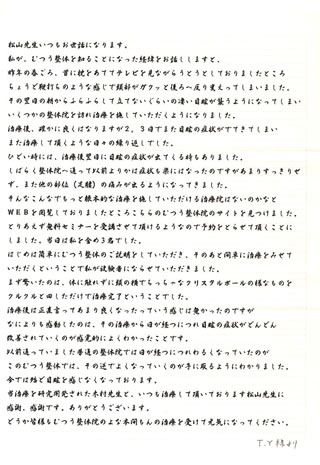 松山先生いつもお世話になります。
私が、むつう整体を知ることになった経緯をお話ししますと、
昨年の春ごろ、首に枕をあててテレビを見ながらうとうとしておりましたところ
ちょうど鞭打ちのような感じで頸部がガクッと後ろへ反り変えってしまいました。
その翌日の朝からふらふらして立てないぐらいの凄い目眩が襲うようになってしまい
いくつかの整体院を訪れ治療を施していただくようになりました。
治療後、確かに良くはなりますが2、3日でまた目眩の症状がでてきてしまい
また治療して頂くような日々の繰り返しでした。
ひどい時には、治療後翌日に目眩の症状が出てくる時もありました。
しばらく整体院へ通って以前よりかは症状も楽にはなったのですがあまりすっきりせ
ず、また他の部位（足腰）の痛みが出るようになってきました。
そんなこんなでもっと根本的な治療を施していただける治療院はないのかなと
WEBを閲覧しておりましたところこちらのむつう整体院のサイトを見つけました。
とりあえず無料セミナーを受講させて頂けるようなので予約をとらせて頂くことに
しました。当日は私を含め3名でした。
はじめは簡単にむつう整体のご説明をしていただき、そのあと簡単に治療をみせて
いただくということで私が被験者にならせていただきました。
まず驚いたのは、体に触れずに頭の横でちっちゃなクリスタルボールの様なものを
クルクルと回しただけで治療完了ということでした。
治療後は正直言ってあまり良くなったっていう感じは無かったのですが
なによりも感動したのは、その治療から日が経つにつれ目眩の症状がどんどん
改善されていくのが感覚的によくわかったことです。
以前通っていました普通の整体院では日が経つにつれわるくなっていくのが
このむつう整体では、その逆でよくなっていくのが手に取るようにわかりました。
今では殆ど目眩を感じなくなっております。
当治療を研究開発された木村先生と、いつも治療して頂いております松山先生に
感謝、感謝です。ありがとうございます。
どうか皆様もむつう整体院のよな本間もんの治療を受けて元気になってください。
T.Y様より